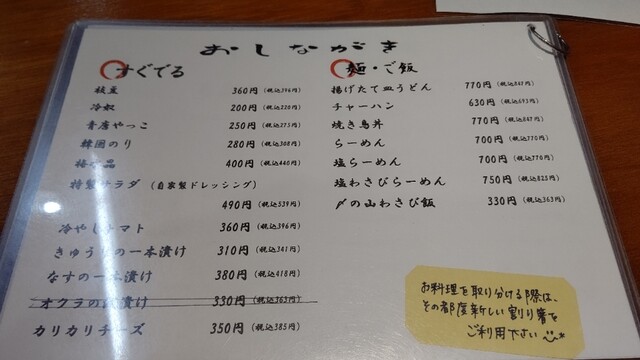 おしながき
すぐでる
枝豆 360円(税込396円)
冷奴 200円(税込220円)
青唐やっこ 250円(税込275円)
韓国のり 280円(税込308円)
400円(税込440円)
特製サラダ (自家製ドレッシング)
490円(税込539円)
冷やしトマト 360円(税込396円)
きゅうりの一本漬け 310円(税込341円)
なすの一本漬け 380円(税込418円)
オクラの 漬け 330円(税込363円)
カリカリチーズ 350円(税込385円)
麺・ご飯
揚げたて皿うどん 770円(税込847円)
チャーハン 630円(税込693円)
焼き鳥丼 770円(税込847円)
らーめん 700円(税込770円)
塩らーめん 700円(税込770円)
塩わさびらーめん 750円(税込825円)
〆の山わさび飯 330円(税込363円)
お料理を取り分ける際は、
その都度新しい割り箸を
ご利用下さい